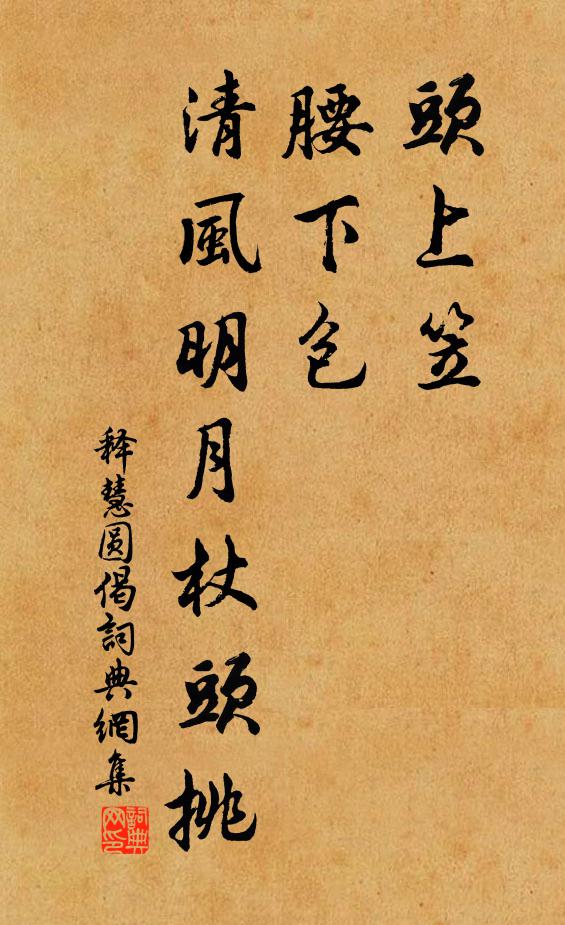 頭上笠
腰下包
清風明月杖頭挑
释慧圆偈詞典網集
詞典网印